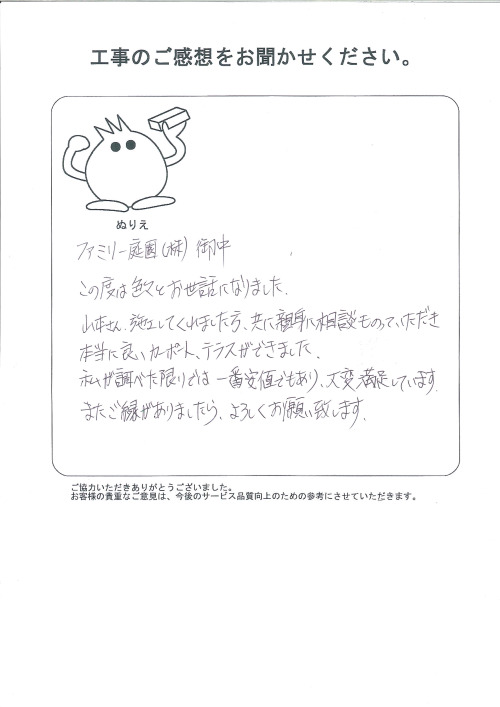 工事のご感想をお聞かせください。
ぬりえ
ファミリー庭園(株) 御中
この度は色々とお世話になりました.
山本さん、施工してくれました方、共に親身に相談ものっていただき
本当に良いカーポート、テラスができました.
私が調べた限りでは一番安値でもあり、大変満足しています.
またご縁がありましたら、よろしくお願い致します.
ご協力いただきありがとうございました。
お客様の貴重なご意見は、今後のサービス品質向上のための参考にさせていただきます。